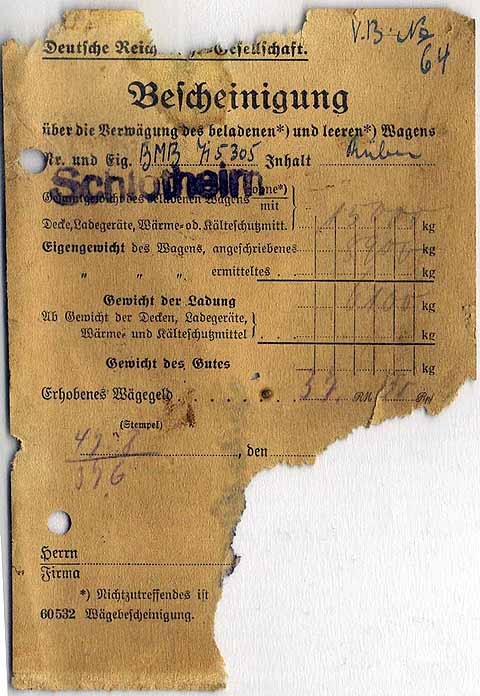 Deutsche Reich Gesellschaft.
V.B. No
64
Bescheinigung
über die Verwägung des beladenen*) und leeren*) Wagens
Nr. und Eig. BMB 45305 Inhalt Rüben
Schlotheim
Gesamtgewicht des beladenen Wagens ohne*)
mit
Decke, Ladegeräte, Wärme- od. Kälteschutzmitt. kg
Eigengewicht des Wagens, angeschriebenes kg
„ „ „ ermitteltes . kg
Gewicht der Ladung kg
Ab Gewicht der Decken, Ladegeräte,
Wärme- und Kälteschutzmittel kg
Gewicht des Gutes kg
Erhobenes Wägegeld . . . . . RM Rpf
(Stempel)
, den
Herrn
Firma
*) Nichtzutreffendes ist
60532 Wägebescheinigung.